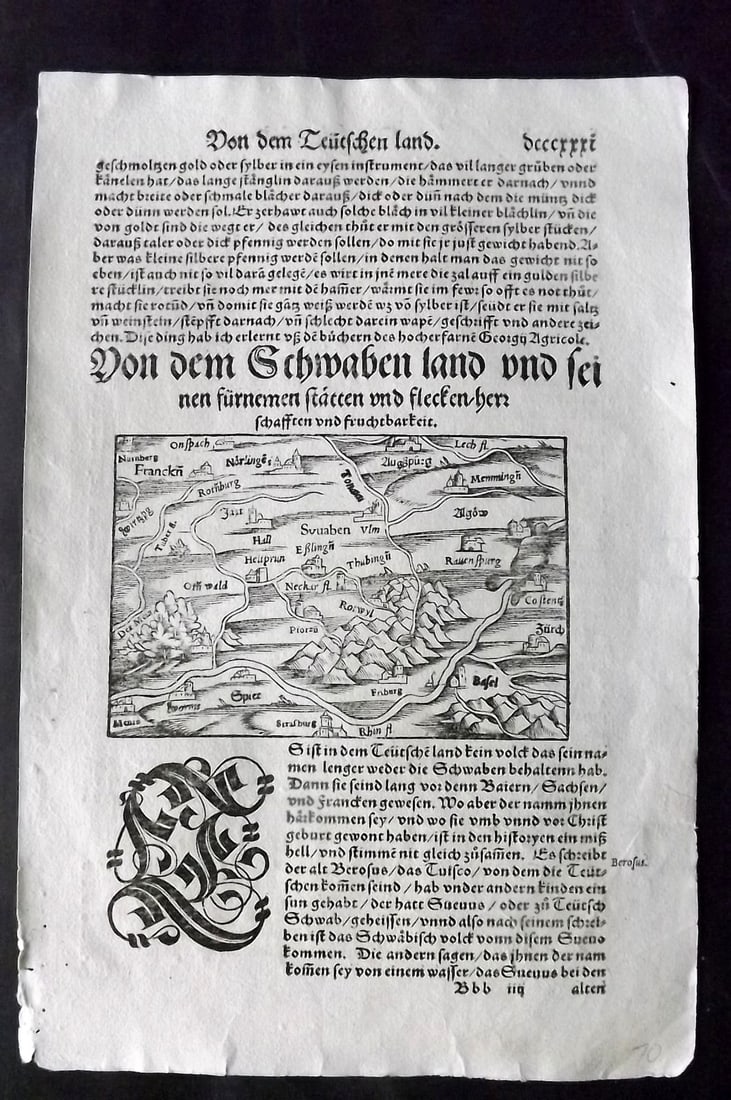 Von dem Teütschen land. dcccxxxi
geschmoltzen gold oder sylber in ein eysen instrument/das vil langer grüben oder
känelen hat/das lange stänglin darauß werden/die hämmert er darnach/vnnd
macht breite oder schmale blächer darauß/dick oder duñ nach dem die müntz dick
oder dünn werden sol. Er zerhawt auch solche bläch in vil kleiner blächlin/vñ die
von goldt sind die wegt er/des gleichen thůt er mit den grösseren sylber stücken/
darauß taler oder dick pfennig werden sollen/do mit sie jr just gewicht habend. A-
ber was kleine silbere pfennig werdē sollen/in denen halt man das gewicht nit so
eben/ist auch nit so vil darā gelegē/es wirt in jnē mere die zal auff ein gulden silbe
re stücklin/treibt sie noch mer mit dē ham̃er/wärmt sie im fewr so offt es not thůt/
macht sie rotūd/vñ domit sie gāz weiß werdē wz vō sylber ist/seudt er sie mit saltz
vñ weinstein/stēpfft darnach/vñ schlecht darein wapē/geschrifft vnd andere zei-
chen. Dise ding hab ich erlernt vß dē büchern des hocherfarnē Georgij Agricole.
Von dem Schwaben land vnd sei
nen fürnemen stätten vnd flecken/herr
schafften vnd fruchtbarkeit.
Onspach Lech fl.
Nurnberg Francken̄ Nörlingē Augspurg
Rotñburg Tonaw Memmingñ
Wirtzpg Jaxt Algöw
Tuber fl. Hall Svvaben Vlm
Heilprun Eßlingñ Thubingñ Rauenspurg
Ottñ wald Neckar fl. Rotwyl Costentz
Pfortzñ Zürch
Spier Friburg Basel
Mentz Wormß Strasburg Rhin fl
ES ist in dem Teütschē land kein volck das sein na-
men lenger weder die Schwaben behaltenn hab.
Dann sie seind lang vor denn Baiern/Sachsen/
vnd Francken gewesen. Wo aber der namm jhnen
härkommen sey/vnd wo sie vmb vnnd vor Christ
geburt gewont haben/ist in den historyen ein miß
hell/vnd stimmē nit gleich zůsam̃en. Es schreibt
Berosus.
der alt Berosus/das Tuisco/von dem die Teüt-
schen kom̃en seind/hab vnder andern kinden ein
sun gehabt/der hatt Sueuus/oder zů Teütsch
Schwab/geheissen/vnnd also nach seinem schrei-
ben ist das Schwäbisch volck vonn disem Sueuo
kommen. Die andern sagen/das jhnen der nam
kom̃en sey von einem wasser/das Sueuus bei den
Bbb iiij alten
70